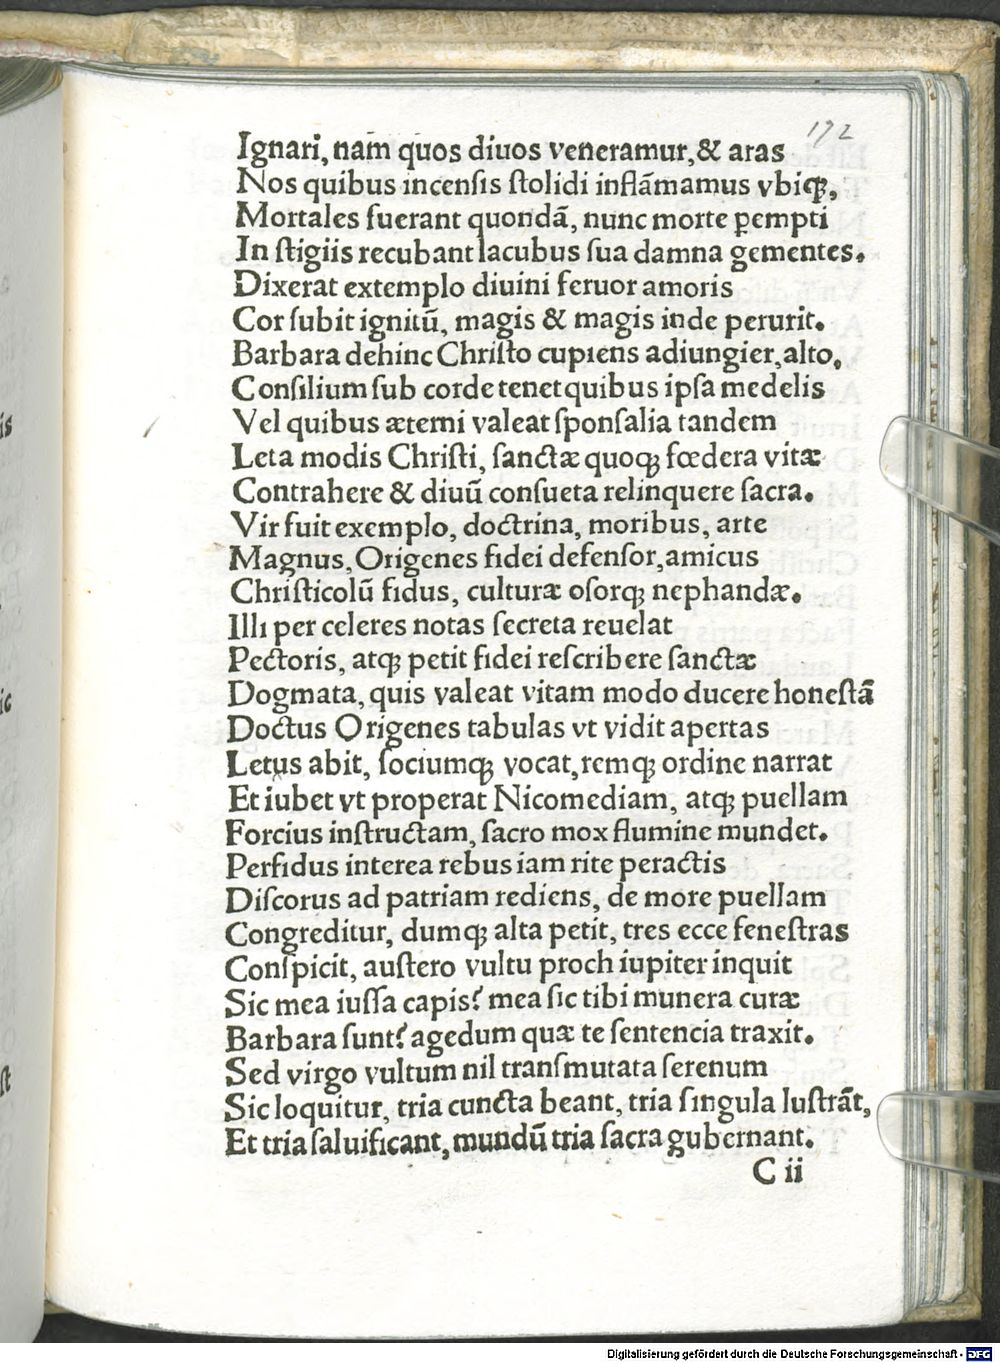 192
Ignari, nam quos diuos veneramur,& aras
Nos quibus incenſis ſtolidi inflãmamus vbiqꝫ,
Mortales fuerant quondã, nunc morte ꝑempti
In ſtigiis recubant lacubus ſua damna gementes.
Dixerat extemplo diuini feruor amoris
Cor ſubit ignitũ, magis & magis inde perurit.
Barbara dehinc Chriſto cupiens adiungier, alto,
Conſilium ſub corde tenet quibus ipſa medelis
Vel quibus æterni valeat ſponſalia tandem
Leta modis Chriſti, ſanctæ quoqꝫ fœdera vitæ
Contrahere & diuũ conſueta relinquere ſacra.
Vir fuit exemplo, doctrina, moribus, arte
Magnus, Origenes fidei defenſor, amicus
Chriſticolũ fidus, culturæ oſorqꝫ nephandæ.
Illi per celeres notas ſecreta reuelat
Pectoris, atqꝫ petit fidei reſcribere ſanctæ
Dogmata, quis valeat vitam modo ducere honeſtã
Doctus Origenes tabulas vt vidit apertas
Letus abit, ſociumqꝫ vocat, remqꝫ ordine narrat
Et iubet vt properat Nicomediam, atqꝫ puellam
Forcius inſtructam, ſacro mox flumine mundet.
Perfidus interea rebus iam rite peractis
Diſcorus ad patriam rediens, de more puellam
Congreditur, dumqꝫ alta petit, tres ecce feneſtras
Conſpicit, auſtero vultu proch iupiter inquit
Sic mea iuſſa capis? mea ſic tibi munera curæ
Barbara ſunt? agedum quæ te ſentencia traxit.
Sed virgo vultum nil tranſmutata ſerenum
Sic loquitur, tria cuncta beant, tria ſingula luſtrãt,
Et tria ſaluificant, mundũ tria ſacra gubernant.
C ii
is
ic
ſt
Digitalisierung gefördert durch die Deutsche Forschungsgemeinschaft - DFG